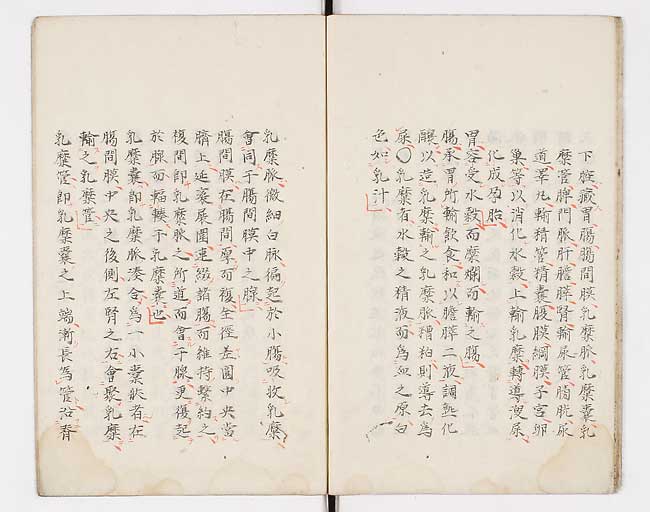 下腹藏胃腸腸間膜乳糜脈乳糜囊乳
糜管脾門脈肝膽膵腎輸尿管膀胱尿
道睪丸輸精管精囊腹膜網膜子宮卵
巢等以消化水穀上輸乳糜轉導溲尿
化成孕胎
胃容受水穀而糜爛而輸之腸
腸承胃所輸飲食和以膽膵二液調熟化
釀以造乳糜輸之乳糜脈糟粕則導去為
屎〇乳糜者水穀之精液而為血之原白
色如乳汁
乳糜脈微細白脈徧起於小腸吸收乳糜
會同于腸間膜中之腺
腸間膜在腸間厚而複坐徑差圓中央當
臍上延袤展圍連綴諸腸而維持繫約之
複間即乳糜脈之所道而會于腺更復起
於腺而輻輳于乳糜囊也
乳糜囊即乳糜脈湊合為一小囊狀者在
腸間膜中央之後側左腎之右會聚乳糜
輸之乳糜管
乳糜管即乳糜囊之上端漸長為管沿脊